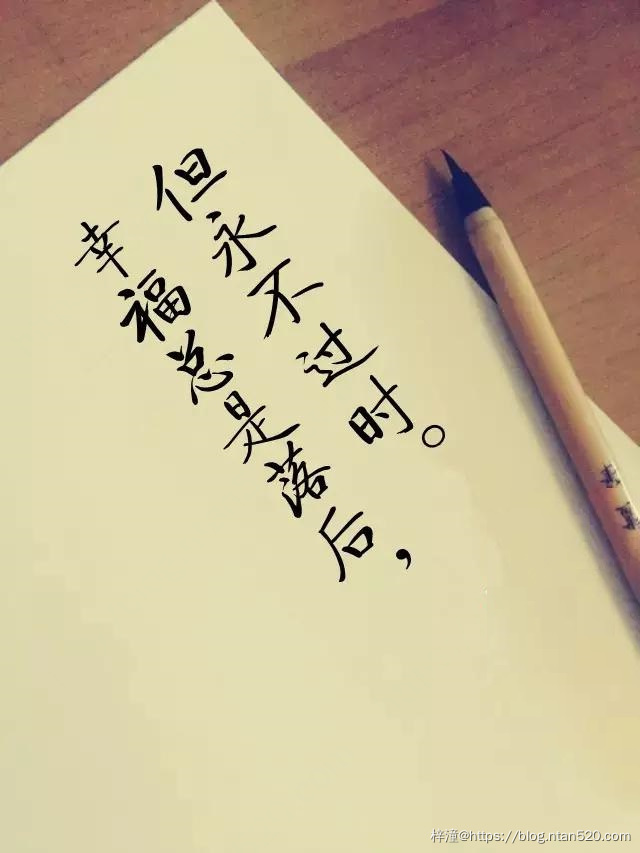 幸福总是落后，
但永不过时。
梓潼@https://blog.ntan520.com